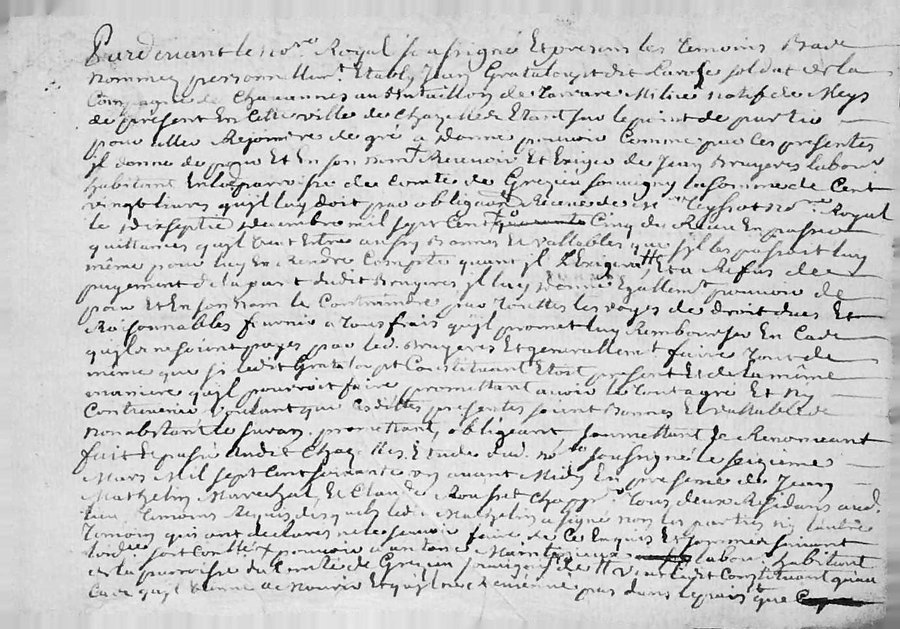 Pardevant le no.re Royal sousigné Et presens les temoins Bas
nommez personnellem.t Etably Jean Grataloup dit Larose soldat de la
Compagnie de Chavannes au Bataillon de Tarare Milice natif de Meys
de présent En cette ville de Chazelle Etant sur le point de partir
pour aller Rejoindre de gré a donné pouvoir Comme par ces presentes
jl donne de pour Et En son nom Recevoir Et Exiger de Jean Bruyeres labour.r
habitant En la parroisse du Comté de Grezieu souvigny la somme de Cent
vingt livres qu'jl luy doit par obligaon Receue de no.re Royal
le dixseptie decembre mil sept Cent Cinq du Receu En passer
quittances qu'jl veut Etre aussy Bonnes Et vallables que sjl les passoit luy
même pour luy En Rendre Compte quant jl l'Exigera Et a Refus de
payement de la part dudit Bruyeres jl luy donne Egallem.t pouvoir de
pour Et En son Nom le Contraindre par touttes les voyes de droit dues Et
Raisonnables fournir a tous frais qu'jl promet luy Rembourser En Cas
qu'jls ne soint payes par led. Bruyeres Et generallement faire tout de
même que si ledit Grataloup Constituant Etoit present Et de la même
maniere qu'jl pourroit faire promettant avoir le tout agré Et ny
Contrevenir voulant que cesdittes presentes soint Bonnes Et vallables
nonobstant le suran, promettant, obligeant soumettant Renonceant
fait Et passé audit Chazelles, Etude dud. no.re sousigné le seizieme
Mars Mil sept Cent soixante un avant Midy En presence de Jean
Mathelin Marechal, Et Claude Rousset Chapp.r tous deux Residans aud.
lieu temoins Requis desquels led. Mathelin a signé non les parties ny l'autre
temoin qui ont declarés ne le scavoir faire de Ce Enquis Et sommes suivant
lordce labour.r habitant
de la parroisse du Comté de Grezieu souvigny ledit Constituant qu'au
Cas qu'jl vienne de mourir Et qu'jl ne Revienne pas dans le pais que